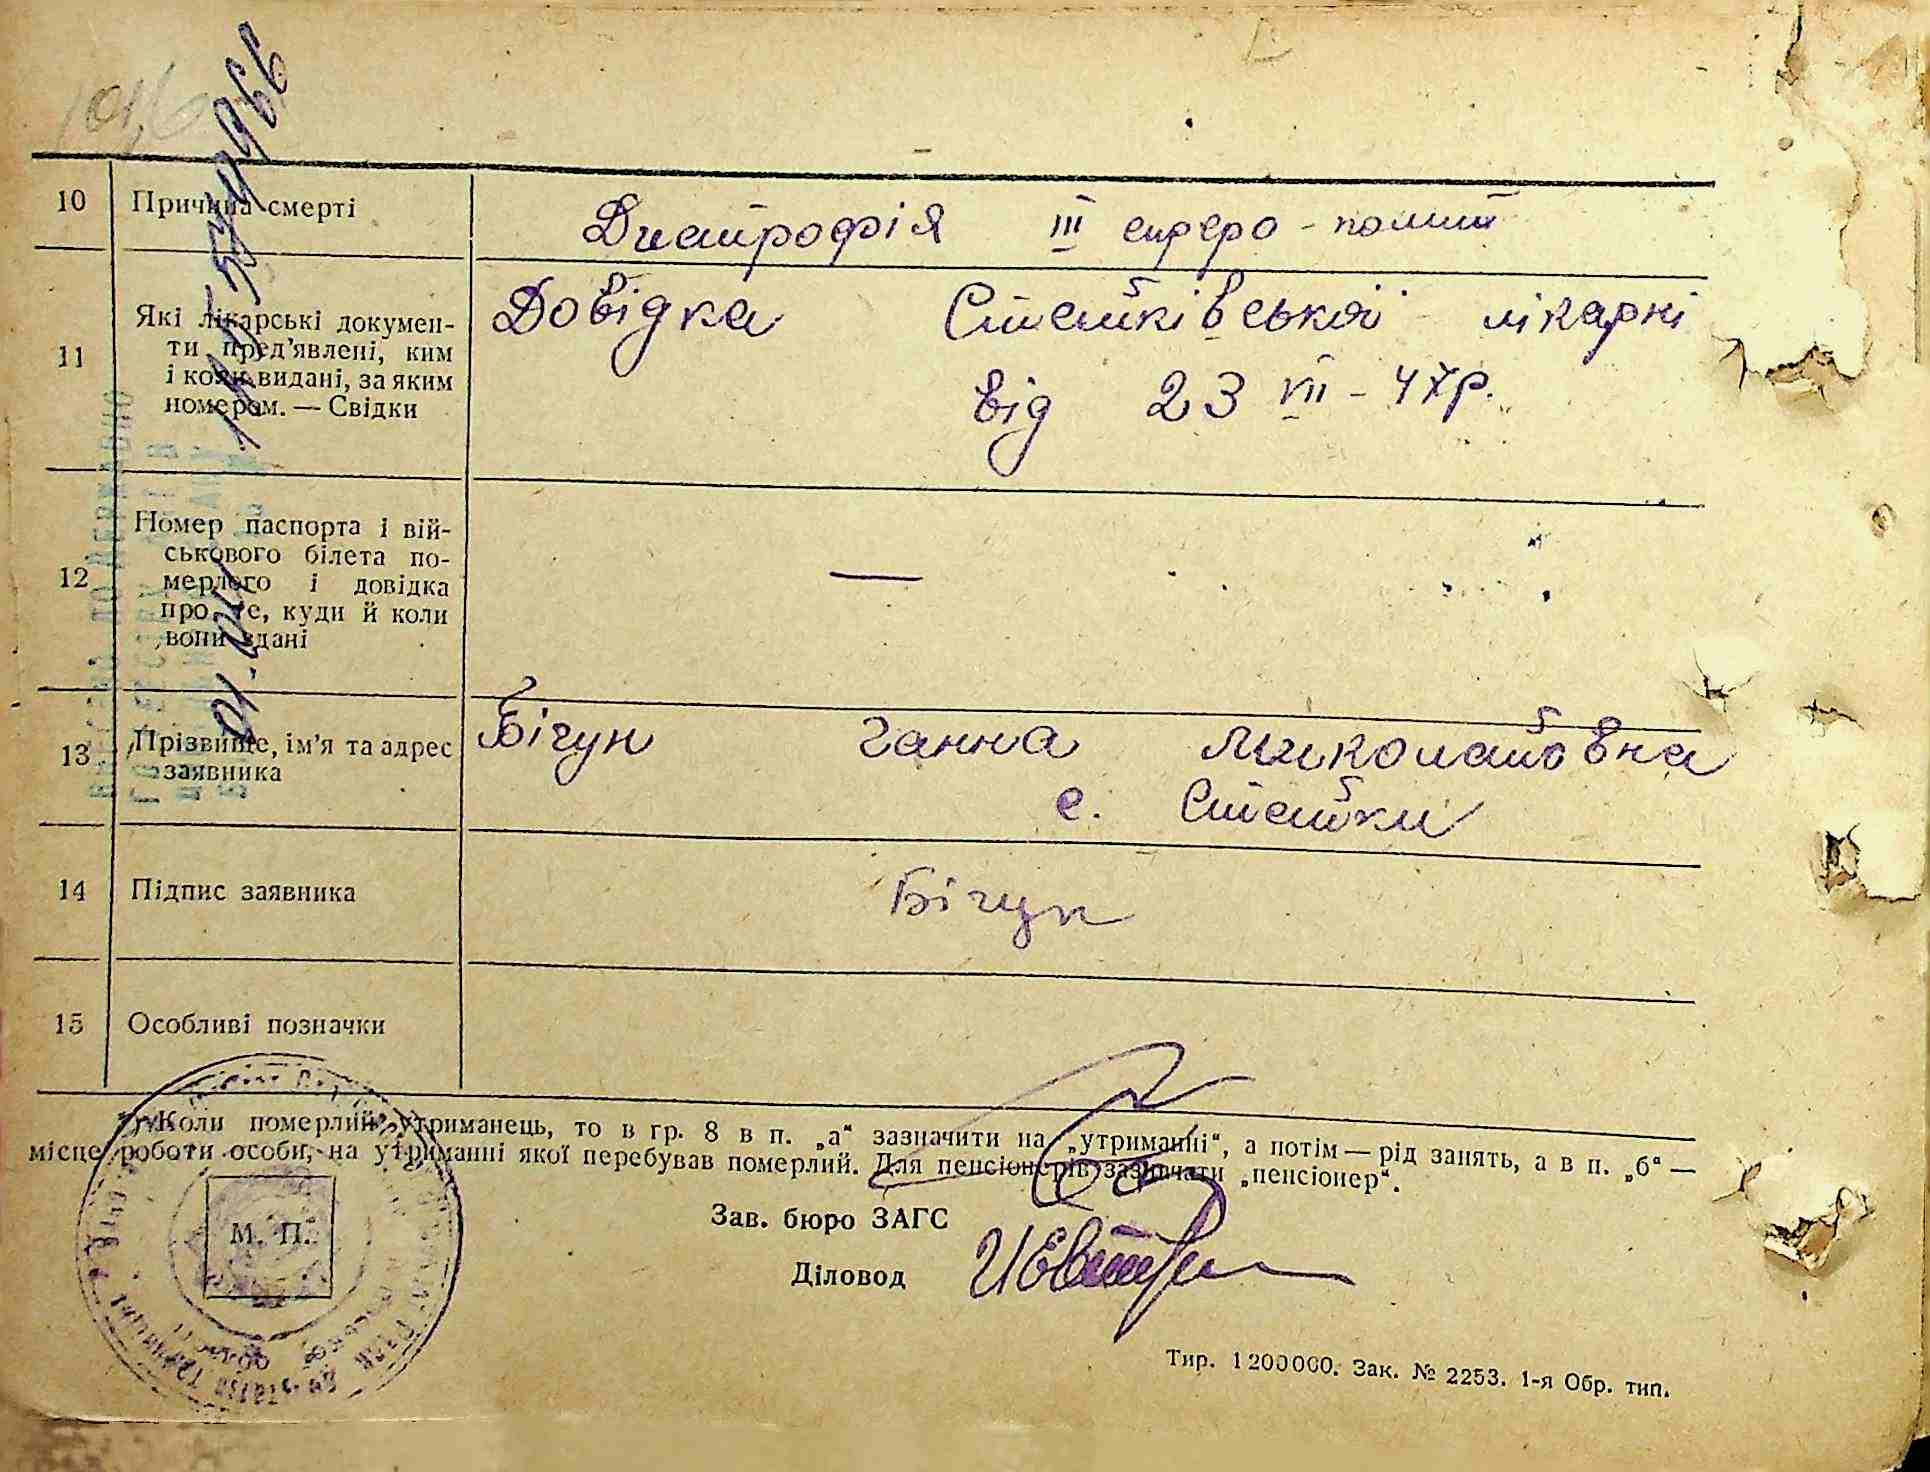 10 Причина смерті
Дистрофія III
11 Які лікарські докумен-
ти пред'явлені, ким
і коли видані, за яким
номером. — Свідки
Довідка Стайківської лікарні
від 23 VII – 47р.
12 Номер паспорта і вій-
ськового білета по-
мерлого і довідка
про те, куди й коли
вони здані
—
13 Прізвище, ім'я та адрес
заявника
Бігун Ганна Миколаївна
с. Стайки
14 Підпис заявника
Бігун
15 Особливі позначки
*) Коли померлий утриманець, то в гр. 8 в п. „а“ зазначити на „утриманні“, а потім — рід занять, а в п. „б“ —
місце роботи особи, на утриманні якої перебував померлий. Для пенсіонерів зазначати „пенсіонер“.
М. П.
Зав. бюро ЗАГС
Діловод
Тир. 1200000. Зак. № 2253. 1-я Обр. тип.